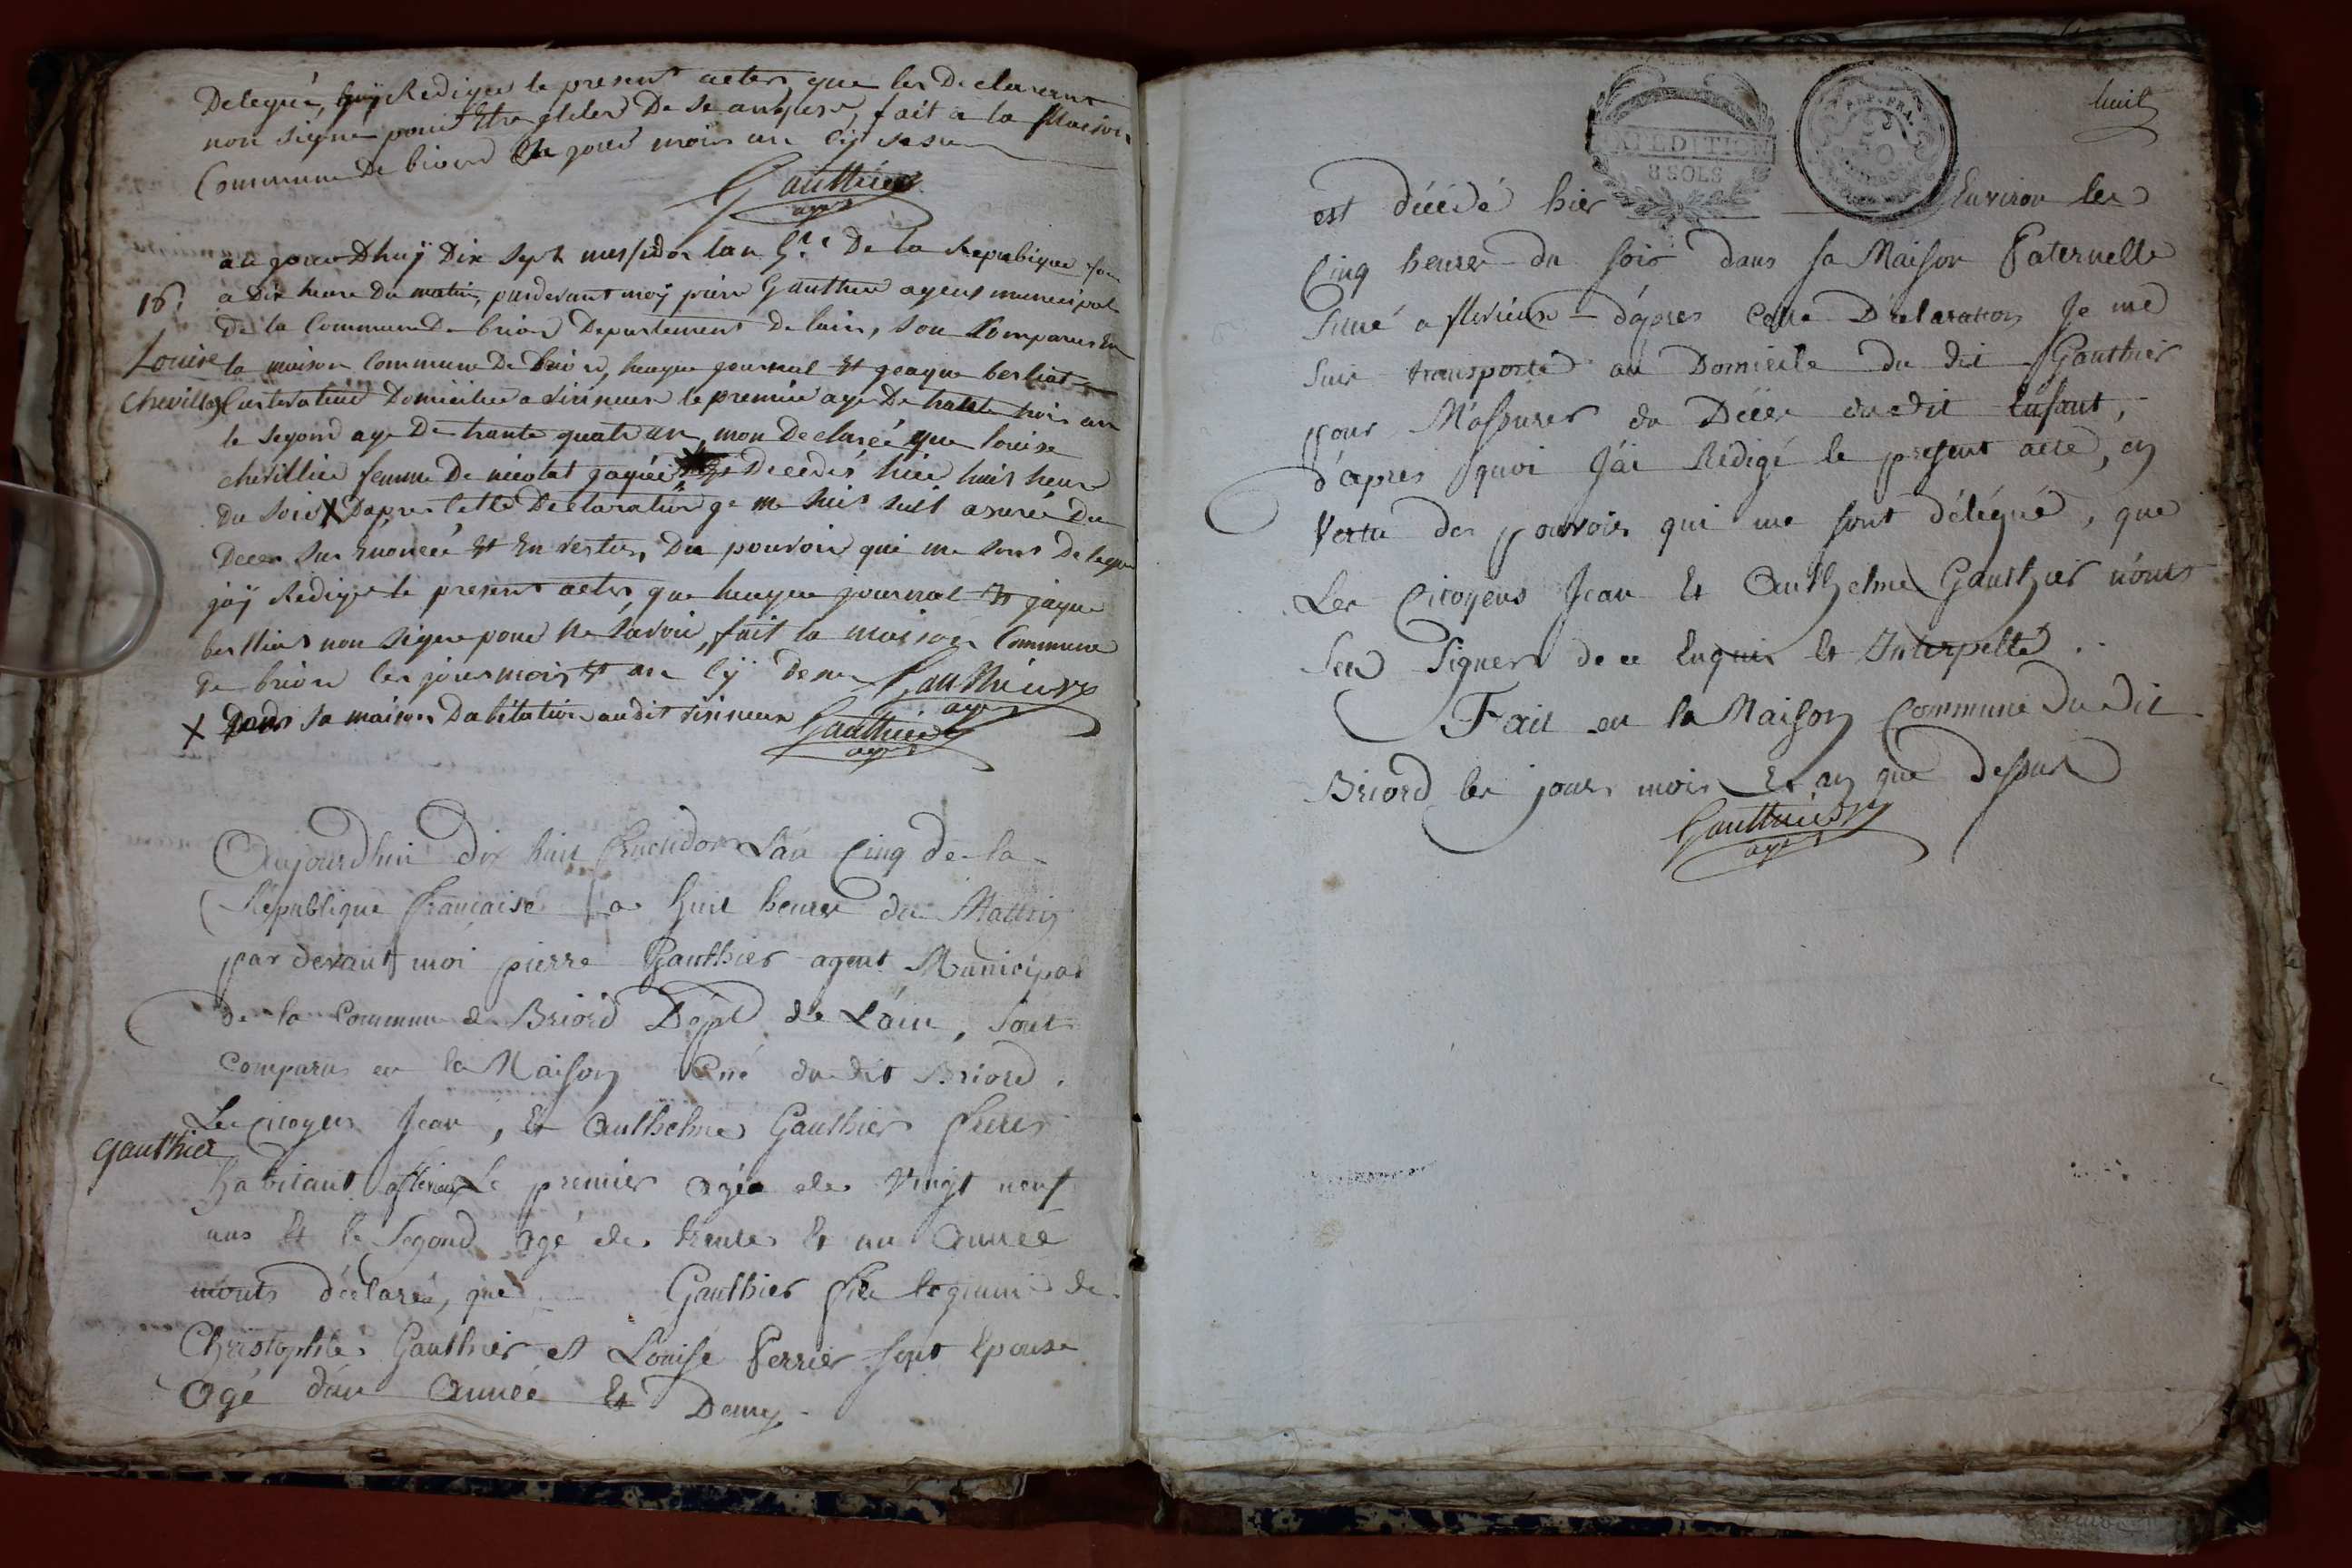 Delegué, jay Rediger le present actes que les Declarant
non signe pour Etre
Commune De briord le jour mois an cy desu
Gauthier
agent
au jourDhuy Dix Sept messidor lan 5.e De la Republique
a Dix heure Du matin, pardevant moy pierre Gauthier agent municipal
16.
De la Commune De briord Departement De lain, son Comparus En
Louise
la maison Commune De briord, heugue journal Et jaque berliat
chevillay
Cultivateur Domicilies a le premier age De trante trois an
le segond age De trante quatre an, mon Declareé que louise
chevillier femme De nicolat Decedes hier huit heure
Du soir X Dapres Cette Declaration je me suis asureé Du
Deces sus Enonceé Et En vertu, Du pouvoir qui me sont Delegue
jay Rediger le present actes que heugue journal Et jaque
berlliat non signe pour ne savoir, fait la maison Commune
De briord les jour mois Et an cy desu Gauthier
agent
X Dans sa maison Dabitation audit Gauthier
agent
Aujourdhui dix huit fructidor Lan Cinq de la
République française a huit heures du Matin
par devant moi pierre Gauthier agent Municipal
de la Commune de Briord Dépt de Lain, sont
Comparus en la Maison Cne du dit Briord.
Les citoyens Jean, Et Anthelme Gauthier freres
Gauthier
habitant a flerieux Le premier agé de Vingt neuf
ans Et le Segond agé de trente Et un Année
m'onts déclaré, que Gauthier fils legitime de
Christophle Gauthier et Louise Perrier sont Epouse
agé dun Année Et Demy
huit
EXPEDITION
8 SOLS
REP. FRA.
50
est décédé hier Environ les
Cinq heures du soir dans sa Maison Paternelle
Situé a flerieux d'apres Cette Déclaration Je me
suis transporté au Domicile du dit Gauthier
pour M'assurer du Décès du dit Enfant,
d'apres quoi J'ai Rédigé le present acte, en
Vertu des pouvoirs qui me sont délégué, que
Les Citoyens Jean Et Anthelme Gauthier n'onts
seu Signer de ce Enquis Et Interpellé.
Fait en la Maison Commune du dit
Briord les jours mois Et an que dessus
Gauthier
agent